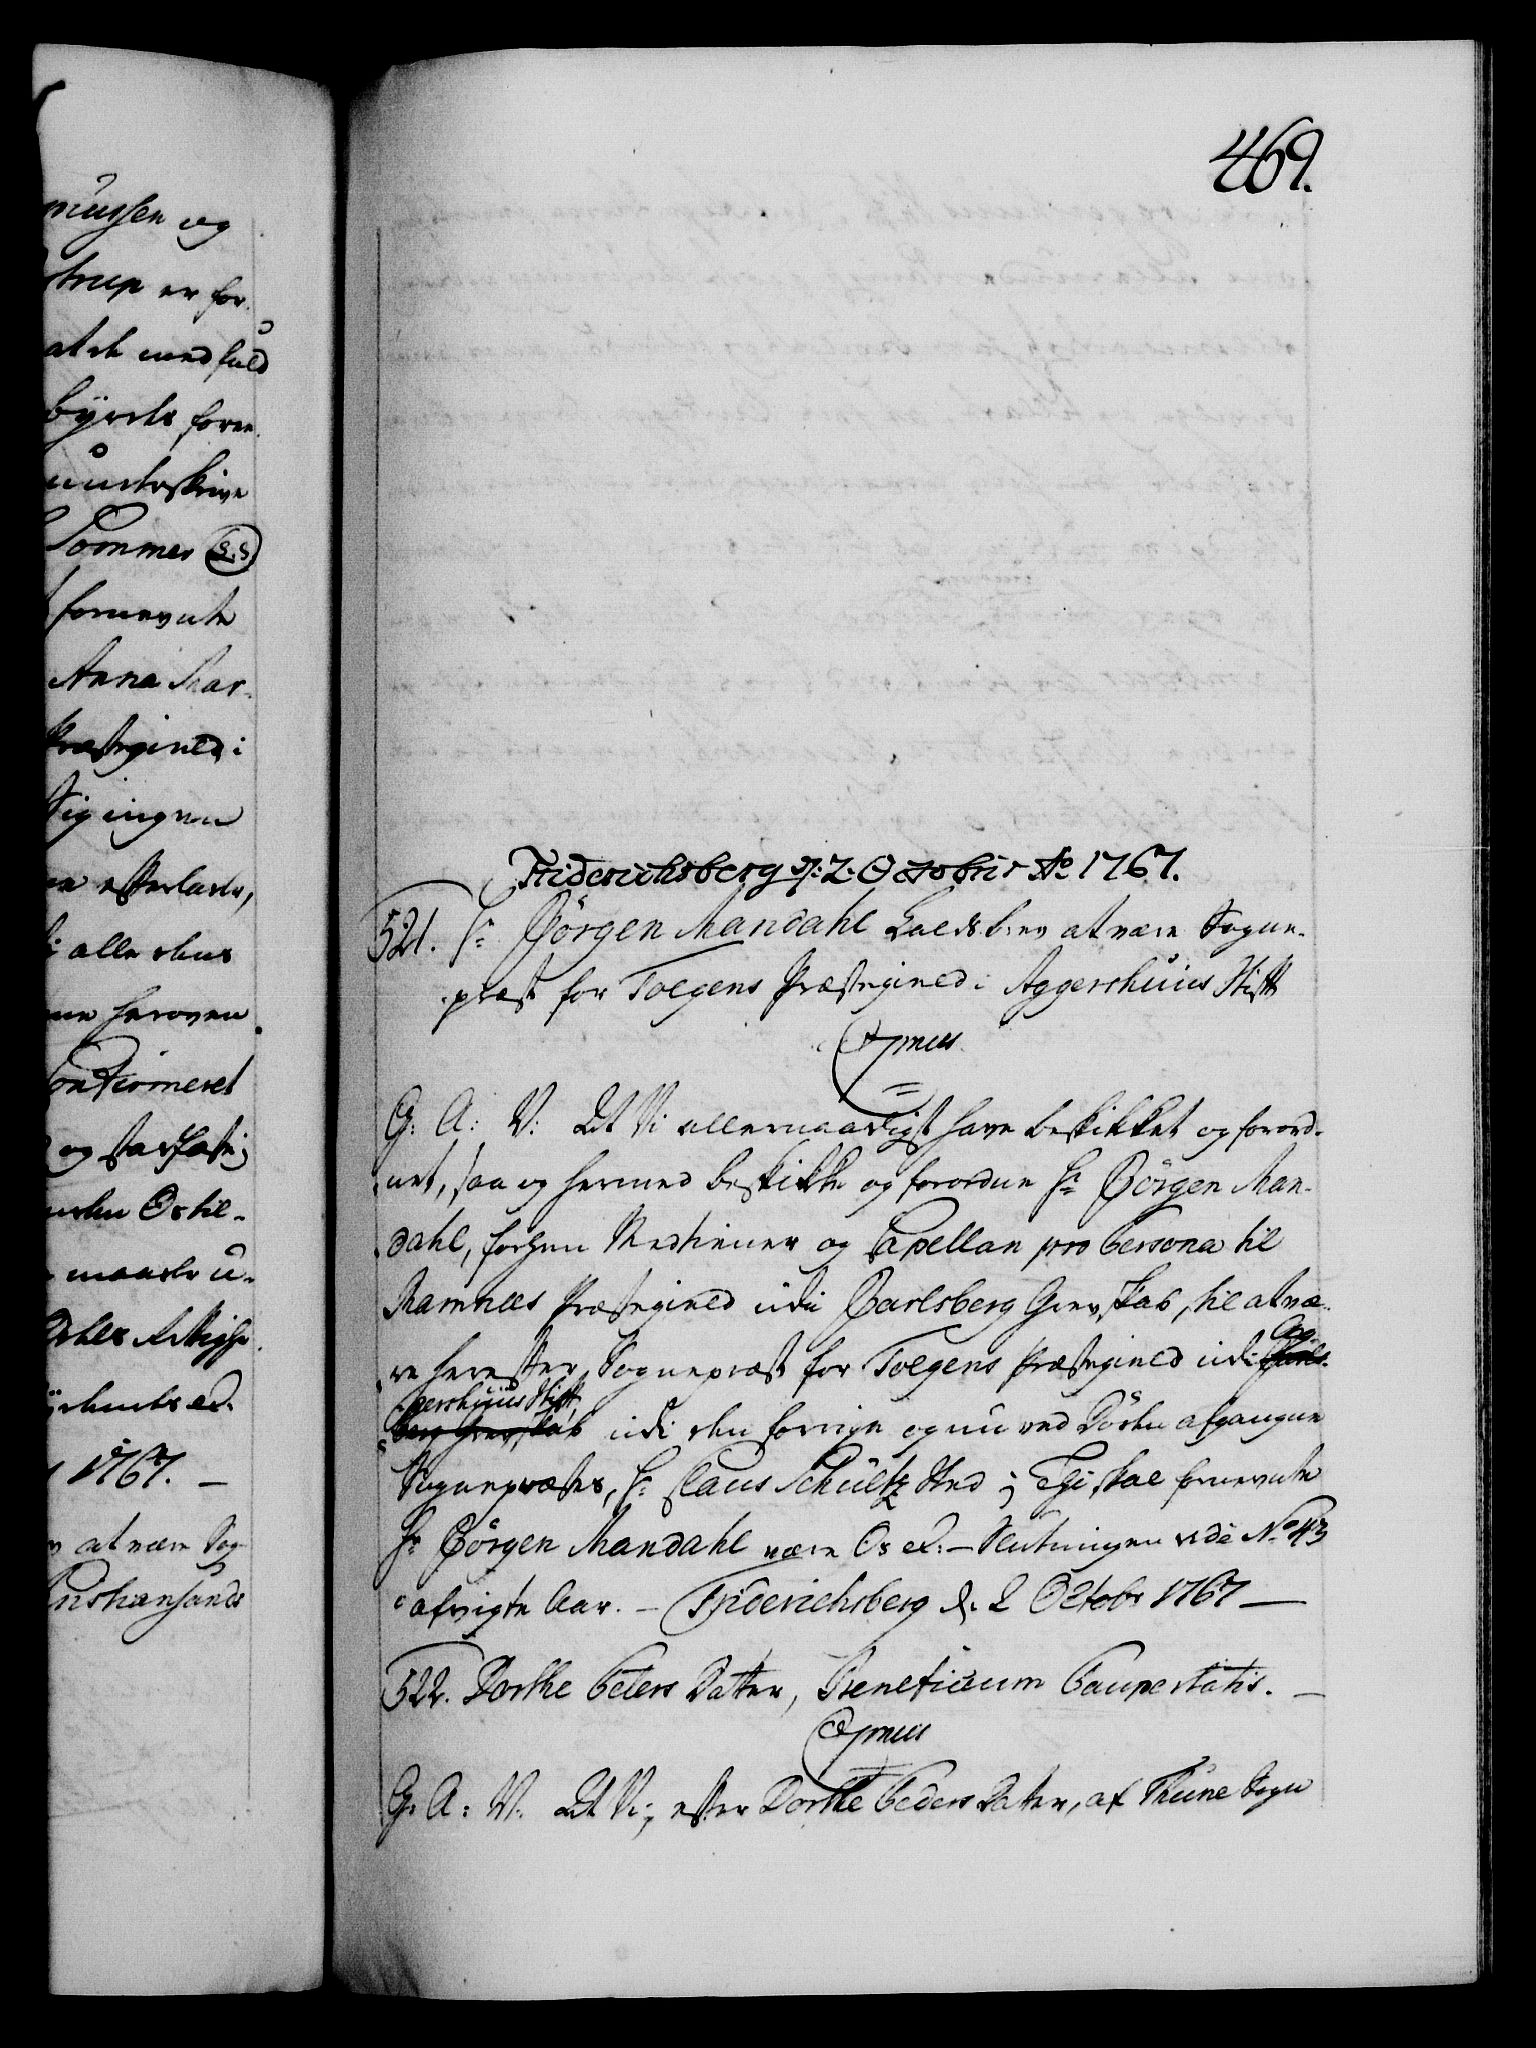 469.
mussen og
strup er for
at de med fuld
byrde foree
underskrive
Sommer S:S:
fornevnte
Anna Mar-
Præstegield i
Sig ingen
efterlade,
i alle dens
heroven
Confirmeret
og stadfæste;
Os til-
maatte u-
1767. —
at være Sog-
Christiansands
Friderichsberg d: 2: Octobris Ao 1767.
521. Hr Jörgen Mandahl Kaldsbrev at være Sogne-
præst for Tolgens Præstegield i Aggershuus Stift
G: A: V: At Vi allernaadigst have beskikket og forord-
net, saa og hermed beskikke og forordne Hr Jörgen Man-
dahl, forhen Medtiener og Capellan pro Persona til
Ramnæs Præstegield udi Jarlsberg Grevskab, til at væ-
re herefter Sognepræst for Tolgens Præstegield udi Ag-
gershuus Stift, udi den forrige og nu ved Döden afgangne
Sognepræstes, Hr Claus Schultz Sted; Thi skal fornevnte
Hr Jörgen Mandahl være Os ed: — Slutningen vide No 43
afvigte Aar. — Friderichsberg d. 2 Octobr 1767 —
522. Dorthe Peters Datter, Beneficium Paupertatis. —
G: A: V: At Vi, efter Dorthe Peders Datter, af Thune Sogn